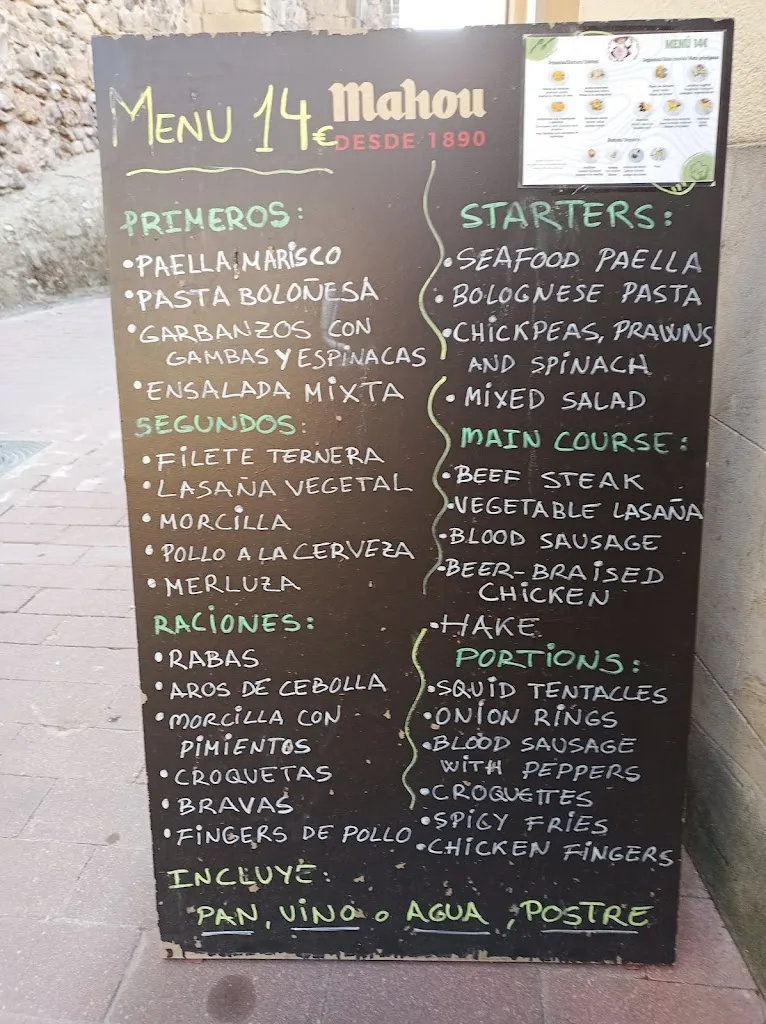 MENU 14€
Mahou
DESDE 1890
MENÚ 14€
PRIMEROS:
• PAELLA MARISCO
• PASTA BOLOÑESA
• GARBANZOS CON
GAMBAS Y ESPINACAS
• ENSALADA MIXTA
SEGUNDOS:
• FILETE TERNERA
• LASAÑA VEGETAL
• MORCILLA
• POLLO A LA CERVEZA
• MERLUZA
RACIONES:
• RABAS
• AROS DE CEBOLLA
• MORCILLA CON
PIMIENTOS
• CROQUETAS
• BRAVAS
• FINGERS DE POLLO
STARTERS:
• SEAFOOD PAELLA
• BOLOGNESE PASTA
• CHICKPEAS, PRAWNS
AND SPINACH
• MIXED SALAD
MAIN COURSE:
• BEEF STEAK
• VEGETABLE LASAÑA
• BLOOD SAUSAGE
• BEER-BRAISED
CHICKEN
• HAKE
PORTIONS:
• SQUID TENTACLES
• ONION RINGS
• BLOOD SAUSAGE
WITH PEPPERS
• CROQUETTES
• SPICY FRIES
• CHICKEN FINGERS
INCLUYE:
PAN, VINO o AGUA, POSTRE